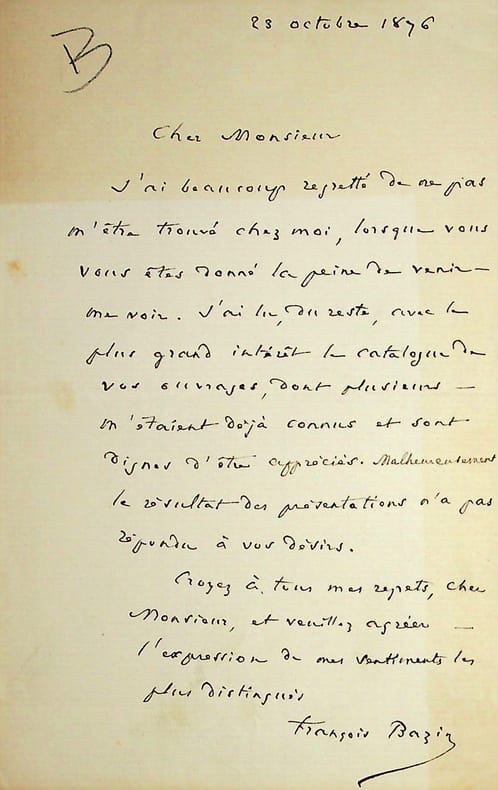 23 octobre 1876
B
Cher Monsieur
J'ai beaucoup regretté de ne pas
m'être trouvé chez moi, lorsque vous
vous êtes donné la peine de venir —
me voir. J'ai lu, du reste, avec le
plus grand intérêt le catalogue de
vos ouvrages, dont plusieurs —
m'étaient déjà connus et sont
dignes d'être appréciés. Malheureusement
le résultat des présentations n'a pas
répondu à vos désirs.
Croyez à tous mes regrets, cher
Monsieur, et veuillez agréer —
l'expression de mes sentiments les
plus distingués
François Bazin